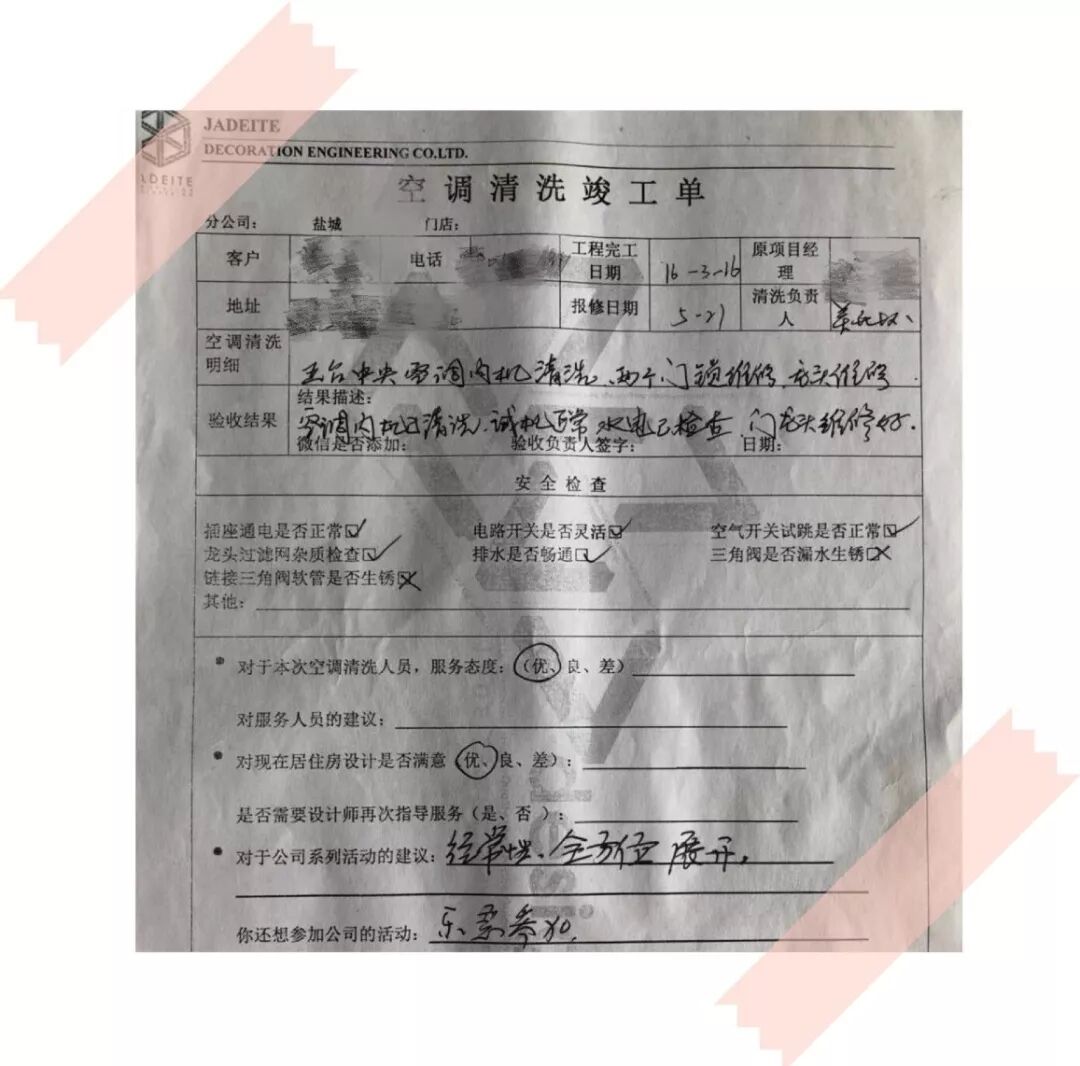 JADEITE
DECORATION ENGINEERING CO.LTD.
ADEITE
空调清洗竣工单
分公司： 盐城 门店：
客户 电话 工程完工日期 16-3-16 原项目经理
地址 报修日期 5-21 清洗负责人
空调清洗明细 五台中央空调内机清洗、两个门锁维修 龙头维修
验收结果 结果描述：
空调内机已清洗、试机正常 水电已检查 门龙头维修好.
微信是否添加： 验收负责人签字： 日期：
安全检查
插座通电是否正常☑ 电路开关是否灵活☑ 空气开关试跳是否正常☑
龙头过滤网杂质检查☑ 排水是否畅通☑ 三角阀是否漏水生锈☒
链接三角阀软管是否生锈☒
其他：
• 对于本次空调清洗人员，服务态度：（优、良、差）
对服务人员的建议：
• 对现在居住房设计是否满意（优、良、差）：
是否需要设计师再次指导服务（是、否 ）：
• 对于公司系列活动的建议：经常性、全方位展开，
你还想参加公司的活动：乐意参加，